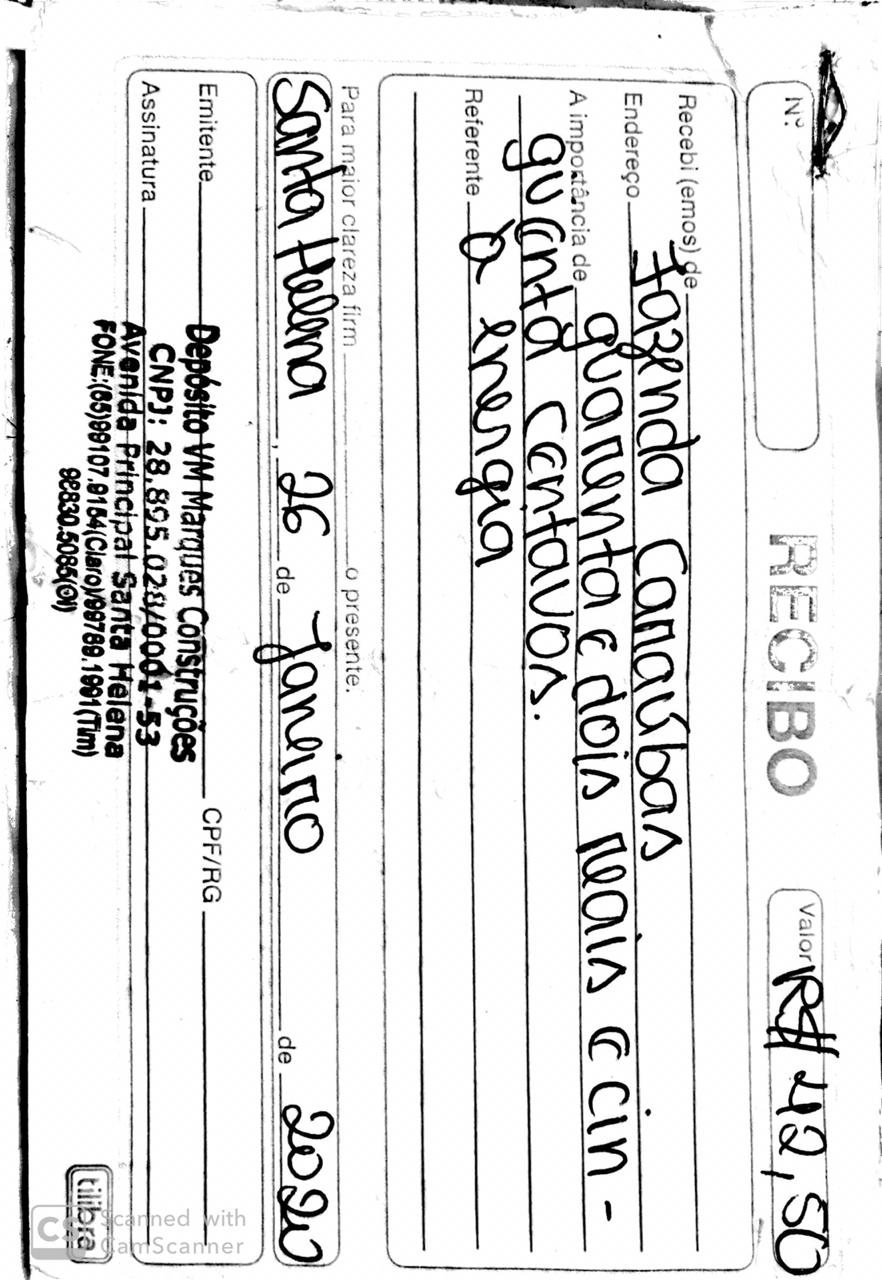 Nº
RECIBO
Valor R$ 42,50
Recebi (emos) de Fazenda Carnaúbas
Endereço
A importância de quarenta e dois reais e cin-
quenta centavos.
Referente à energia
Para maior clareza firm o presente.
Santa Helena, 26 de Janeiro de 2020
Emitente CPF/RG
Assinatura
Depósito VM Marques Construções
CNPJ: 28.895.028/0001-53
Avenida Principal Santa Helena
FONE:(85)99107.9154(Claro)/99789.1991(Tim)
98830.5085(OI)
tilibra
CS Scanned with
CamScanner